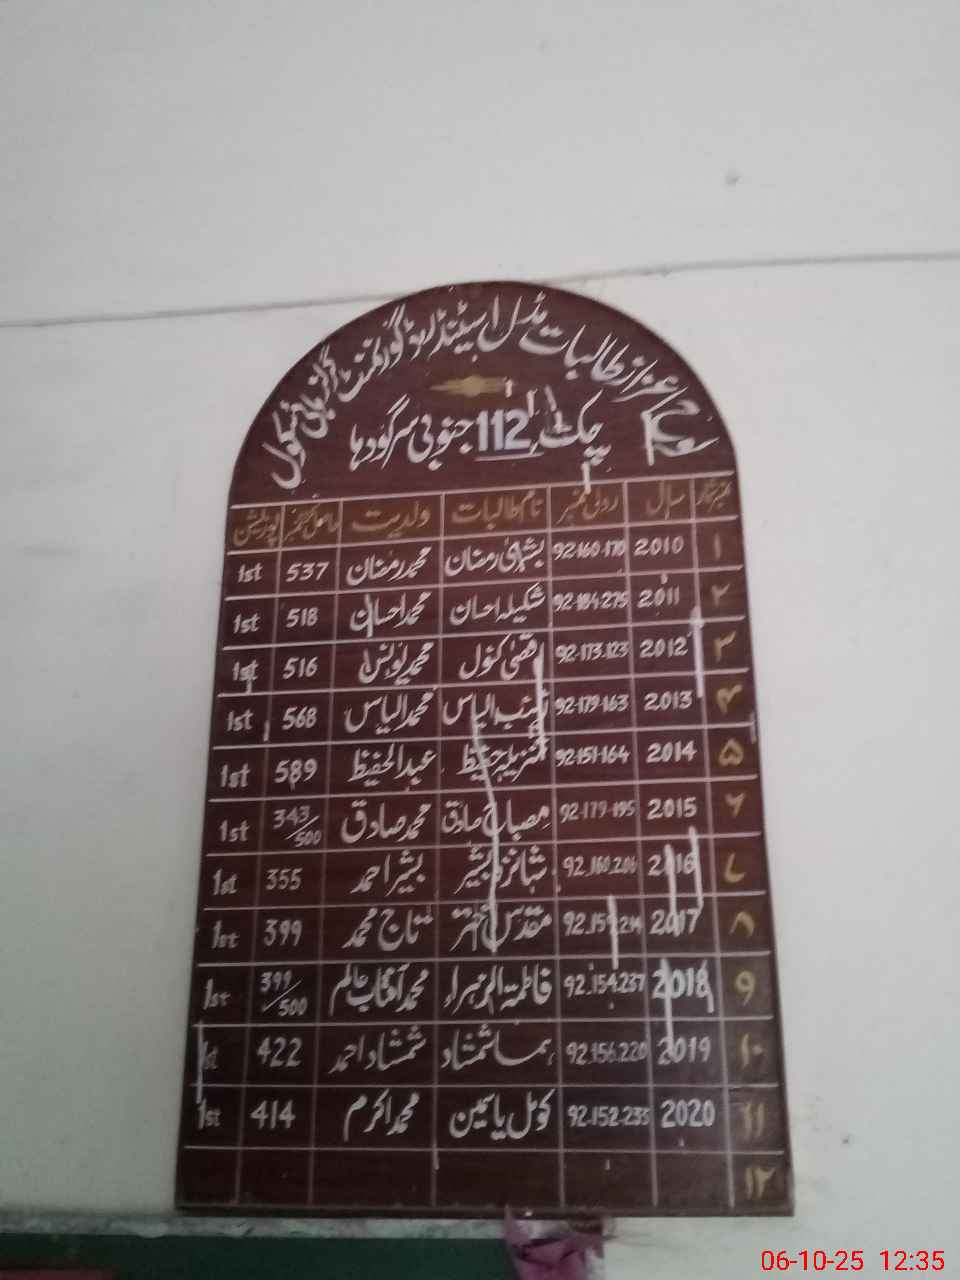 لوح اعزاز طالبات مڈل اسٹینڈرڈ گورنمنٹ گرلز ہائی سکول
چک 112 جنوبی سرگودہا
نمبر شمار سال رولنمبر نام طالبات ولدیت حاصل کردہ نمبر پوزیشن
۱ 2010 92-160-170 بشریٰ رمضان محمد رمضان 537 1st
۲ 2011 92-184-275 شکیلہ احسان محمد احسان 518 1st
۳ 2012 92-173-123 اقصیٰ کنول محمد یونس 516 1st
۴ 2013 92-179-163 زینب الیاس محمد الیاس 568 1st
۵ 2014 92-151-164 تنزیلہ حفیظ عبدالحفیظ 589 1st
۶ 2015 92-179-195 مصباح صادق محمد صادق 343/500 1st
۷ 2016 92.160.206 شانزہ بشیر بشیر احمد 355 1st
۸ 2017 مقدس اختر تاج محمد 399 1st
9 2018 92.154.237 فاطمۃ الزہراء محمد آفتاب عالم 399/500 1st
۱۰ 2019 92.156.220 ہما شمشاد شمشاد احمد 422 1st
۱۱ 2020 92-152-235 کومل یاسمین محمد اکرم 414 1st
۱۲
06-10-25 12:35